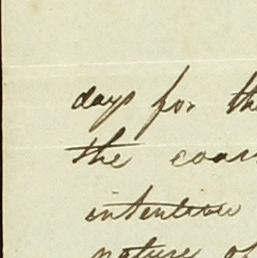 days for the
the coas
intention
nature of